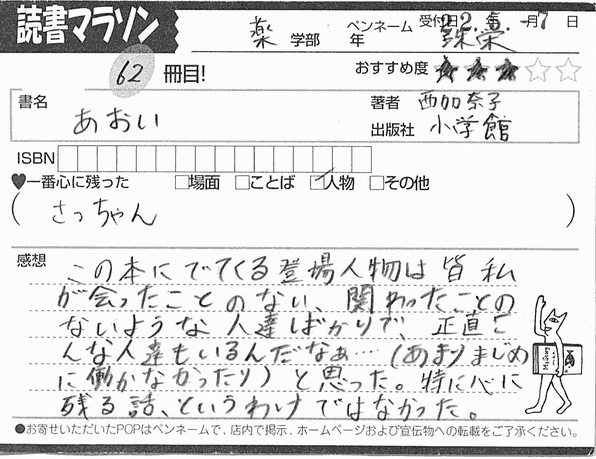 読書マラソン
薬 学部 年
ペンネーム 珠栄
受付日 22. 5. -7 日
62 冊目!
おすすめ度 ★★★☆☆
書名
あおい
著者 西加奈子
出版社 小学館
ISBN
♥一番心に残った □場面 □ことば □人物 □その他
(さっちゃん)
感想
この本にでてくる登場人物は皆私
が会ったことのない、関わったことの
ないような人達ばかりで、正直こ
んな人達もいるんだなぁ…(あまりまじめ
に働かなかったり)と思った。特に心に
残る話、というわけではなかった。
●お寄せいただいたPOPはペンネームで、店内で掲示、ホームページおよび宣伝物への転載をご了承ください。